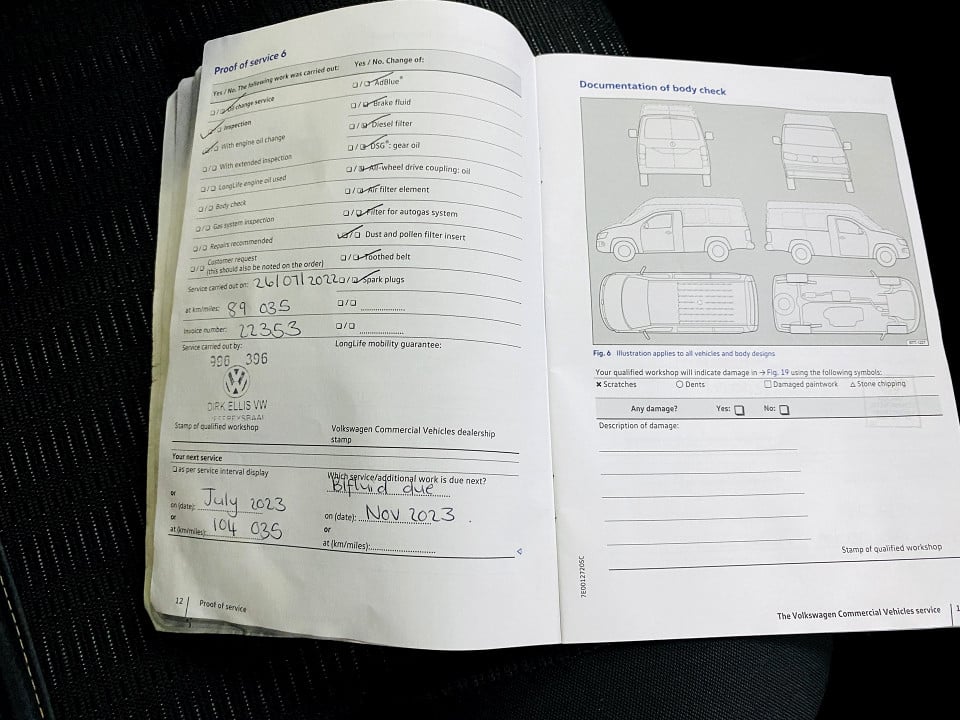 Proof of service 6
Yes / No. The following work was carried out:
☐ / ☐ Oil change service
☐ / ☐ Inspection
☐ / ☐ With engine oil change
☐ / ☐ With extended inspection
☐ / ☐ LongLife engine oil used
☐ / ☐ Body check
☐ / ☐ Gas system inspection
☐ / ☐ Repairs recommended
☐ / ☐ Customer request
(this should also be noted on the order)
Service carried out on: 26/07/2022
at km/miles: 89 035
Invoice number: 22353
Service carried out by:
396 396
DIRK ELLIS VW
JEFFREYSBAAI
Stamp of qualified workshop
Yes / No. Change of:
☐ / ☐ AdBlue®
☐ / ☐ Brake fluid
☐ / ☐ Diesel filter
☐ / ☐ DSG®: gear oil
☐ / ☐ All-wheel drive coupling: oil
☐ / ☐ Air filter element
☐ / ☐ Filter for autogas system
☐ / ☐ Dust and pollen filter insert
☐ / ☐ Toothed belt
☐ / ☐ Spark plugs
☐ / ☐
☐ / ☐
LongLife mobility guarantee:
Volkswagen Commercial Vehicles dealership
stamp
Your next service
☐ as per service interval display
or
on (date): July 2023
or
at (km/miles): 104 035
Which service/additional work is due next?
B/fluid due
on (date): Nov 2023
or
at (km/miles):
12 Proof of service
Documentation of body check
Fig. 6 Illustration applies to all vehicles and body designs
Your qualified workshop will indicate damage in → Fig. 19 using the following symbols:
✖ Scratches ○ Dents ☐ Damaged paintwork △ Stone chipping
Any damage? Yes: ☐ No: ☐
Description of damage:
Stamp of qualified workshop
7E0012720SC
The Volkswagen Commercial Vehicles service